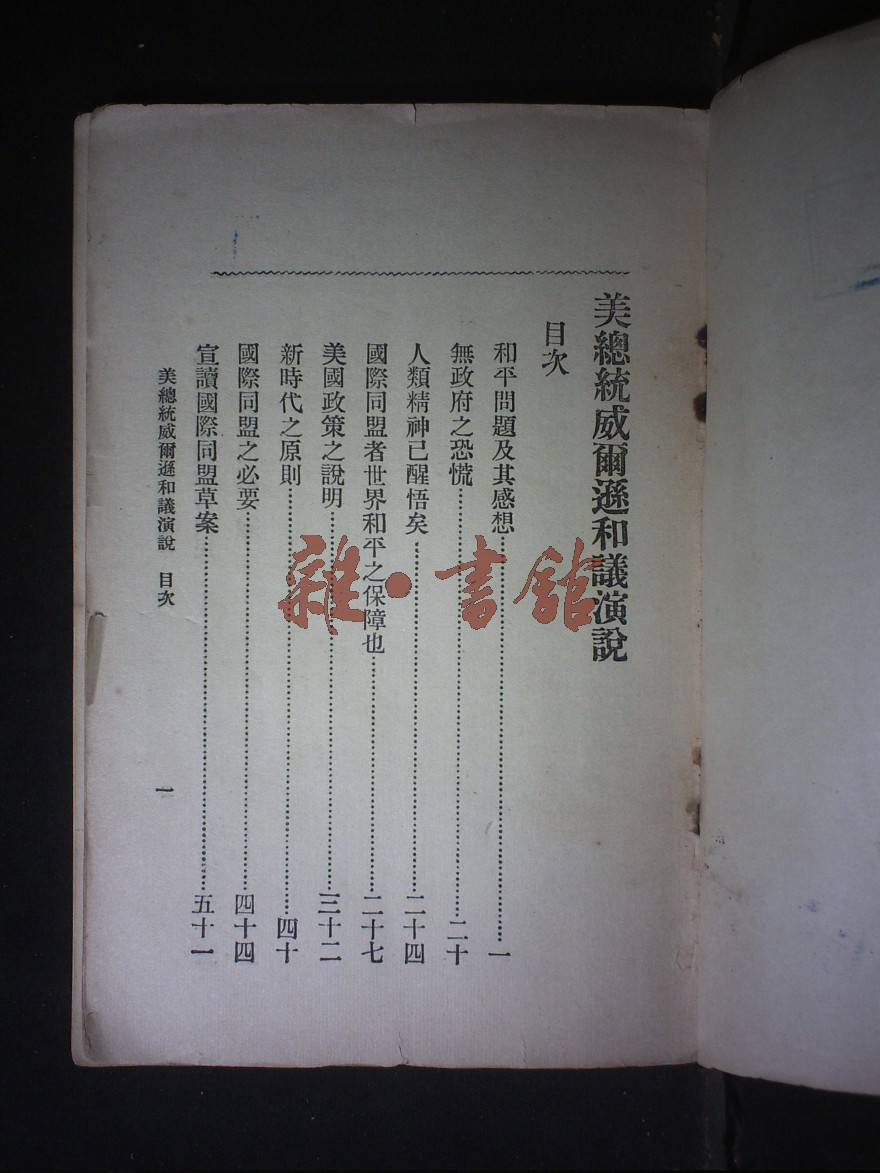 美總統威爾遜和議演說
目次
和平問題及其感想……一
無政府之恐慌……二十
人類精神已醒悟矣……二十四
國際同盟者世界和平之保障也……二十七
美國政策之說明……三十二
新時代之原則……四十
國際同盟之必要……四十四
宣讀國際同盟草案……五十一
美總統威爾遜和議演說 目次 一
雜·書館